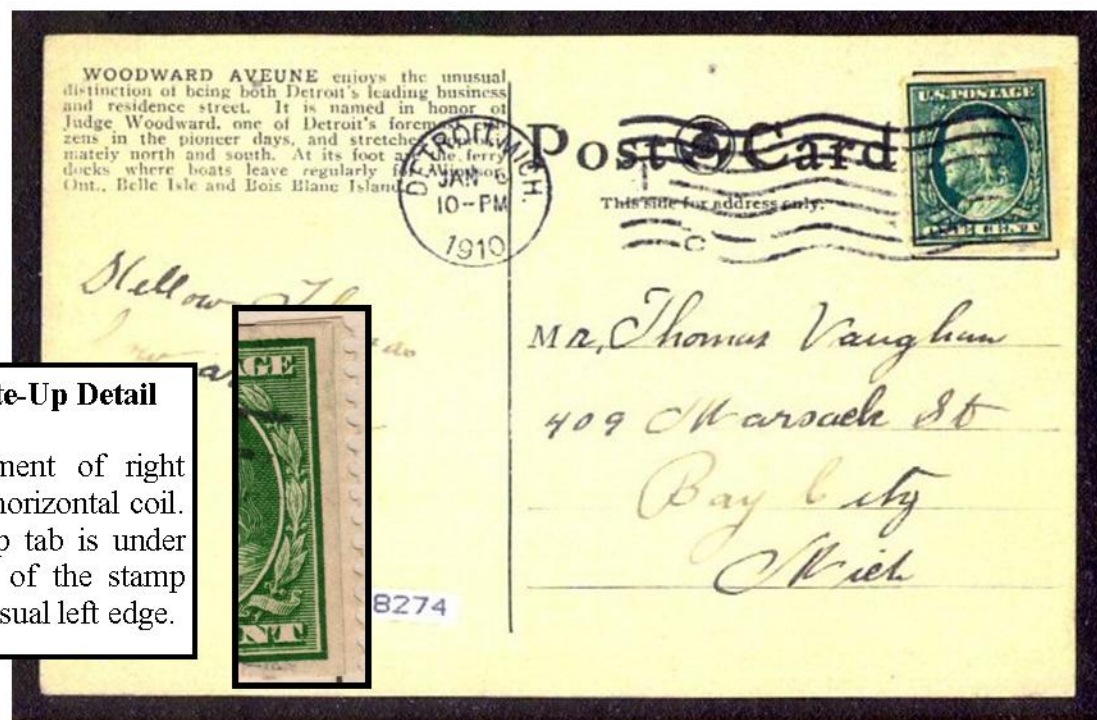 WOODWARD AVEUNE enjoys the unusual
distinction of being both Detroit's leading business
and residence street. It is named in honor of
Judge Woodward, one of Detroit's
zens in the pioneer days, and
mately north and south. At its foot the ferry
docks where boats leave regularly
Ont., Belle Isle and Bois Blanc Island
DETROIT, MICH.
JAN
10-PM
1910
Post Card
This side for address only.
U.S. POSTAGE
ONE CENT
Hellow
Mr, Thomas Vaughan
409 Marsack St
Bay City
Mich
te-Up Detail
ment of right
horizontal coil.
p tab is under
of the stamp
sual left edge.
GE
NT
8274